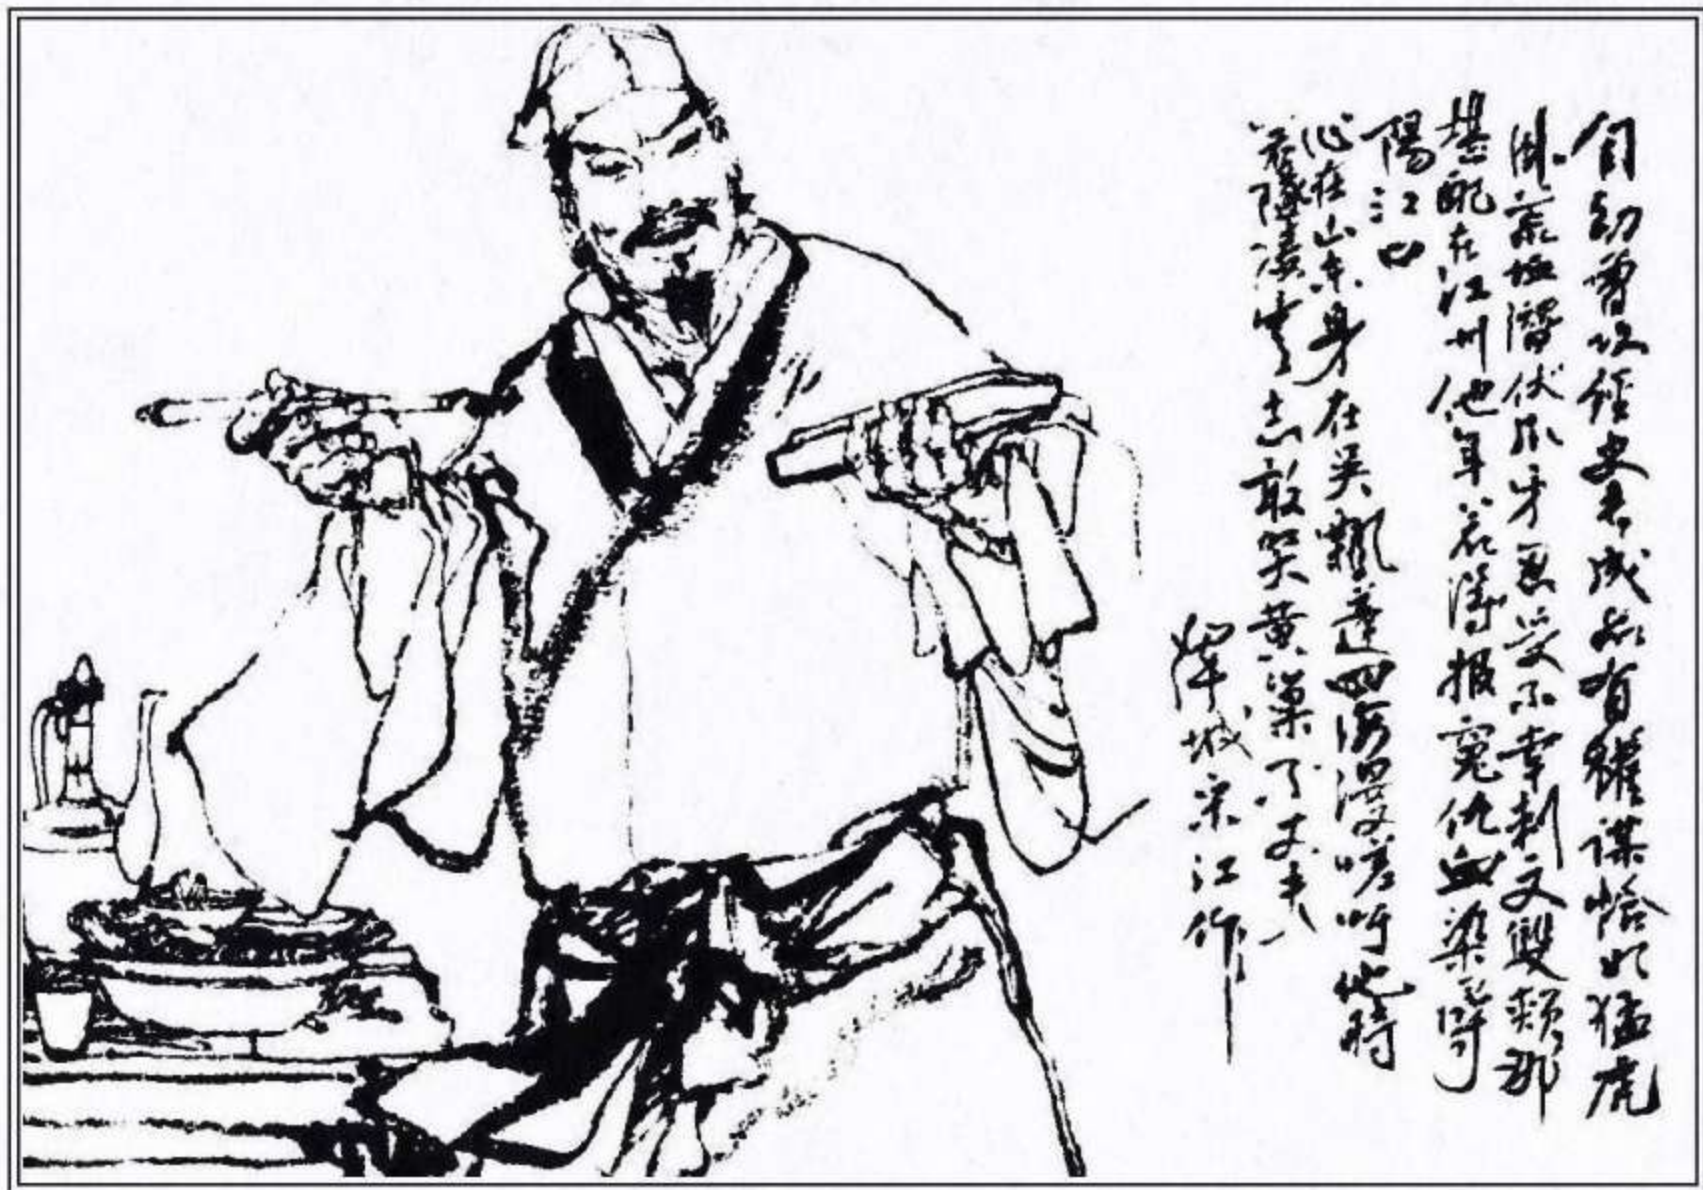 自幼曾攻經史長成亦有權謀恰如猛虎
臥荒坵潛伏爪牙忍受不幸刺文雙頰那
堪配在江州他年若得報冤仇血染潯
陽江口
心在山東身在吳飄蓬四海漫嗟吁他時
若遂凌雲志敢笑黃巢不丈夫
鄆城宋江作